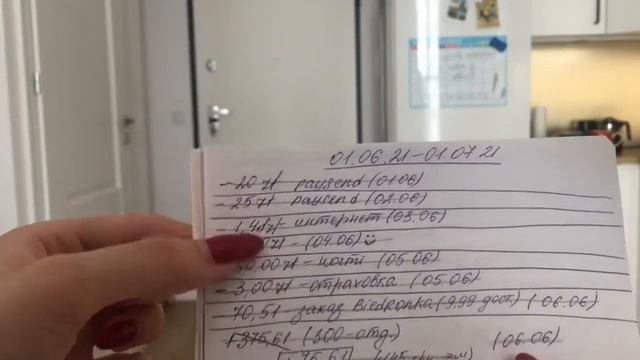 01.06.21-01.07.21
- 20 zł paysend (01.06)
- 25 zł paysend (02.06)
- интернет (03.06)
zł - (04.06) :)
0,00 zł - ногти (05.06)
- 3,00 zł - страховка (05.06)
- 70,51 - заказ Biedronka (9.99 дост.) (06.06)
+375,61 (300-отд.) (06.06)
75,61